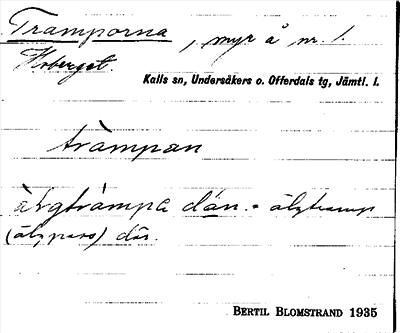 Tramporna, myr å nr. 1.
Hoberget.
Kalls sn, Undersåkers o. Offerdals tg, Jämtl. l.
trampan
älgtrampa där. = älgtramp
(älgpass) där.
BERTIL BLOMSTRAND 1935